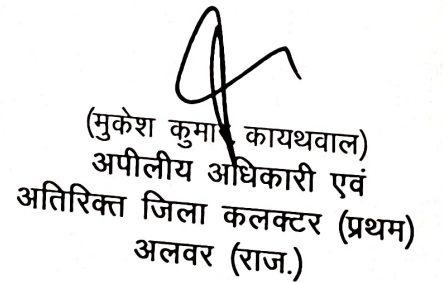 (मुकेश कुमार कायथवाल)
अपीलीय अधिकारी एवं
अतिरिक्त जिला कलक्टर (प्रथम)
अलवर (राज.)